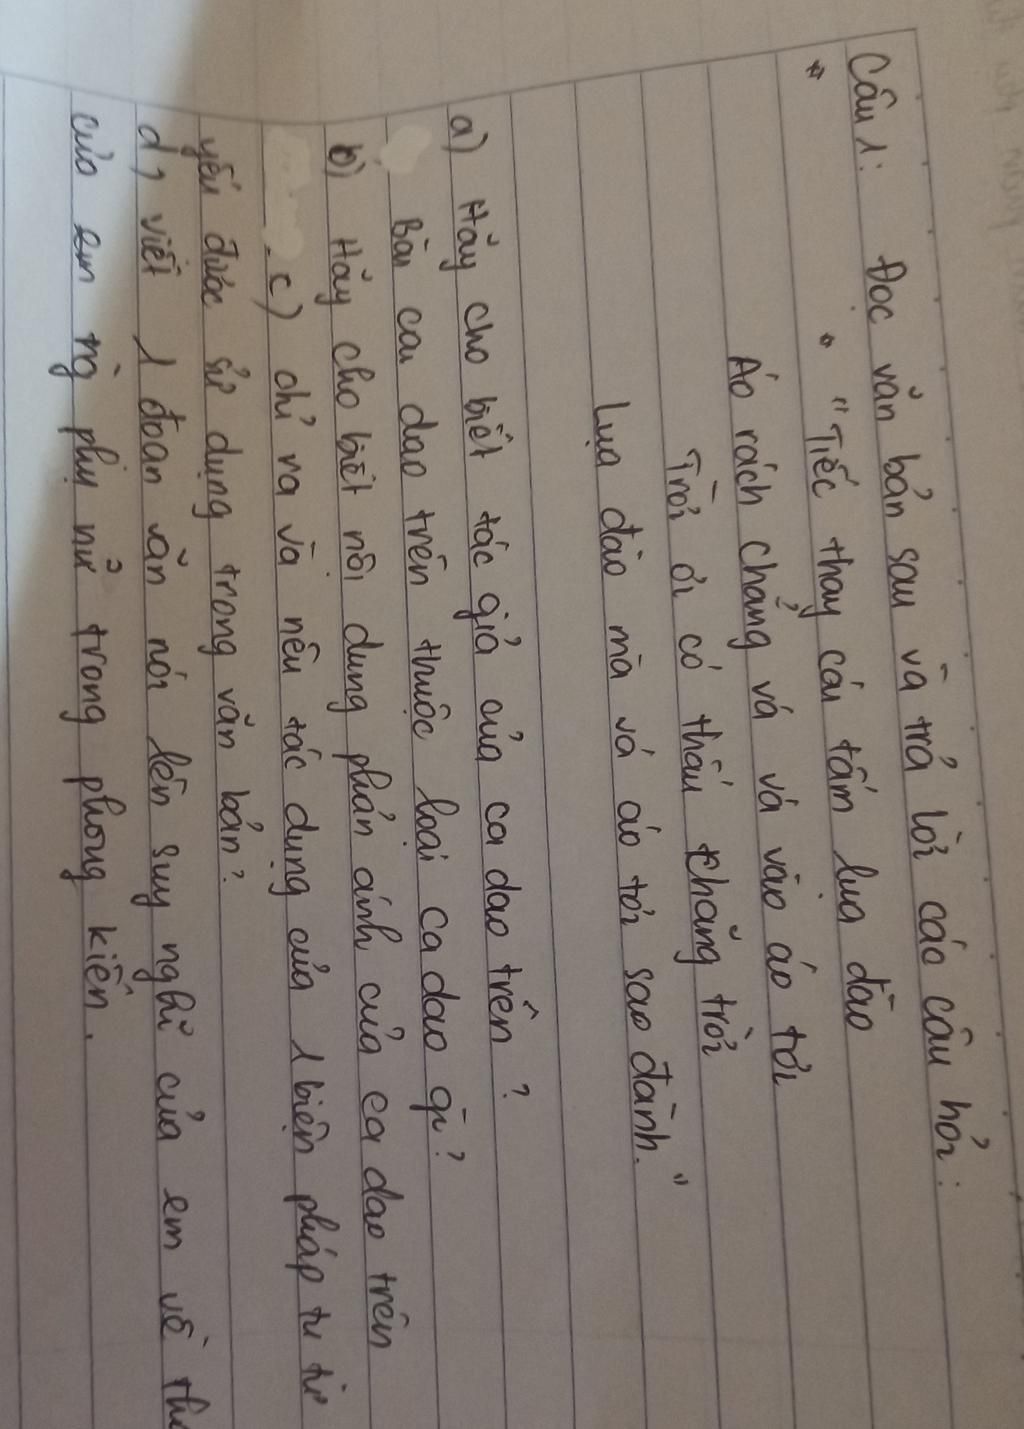 Câu 1: Đọc văn bản sau và trả lời các câu hỏi:
"Tiếc thay cái tấm lụa đào
Áo rách chẳng vá vá vào áo tơi
Trời ơi có thấu chăng trời
Lụa đào mà vá áo tơi sao đành."
a) Hãy cho biết tác giả của ca dao trên?
Bài ca dao trên thuộc loại ca dao gì?
b) Hãy cho biết nội dung phản ánh của ca dao trên
c) chỉ ra và nêu tác dụng của 1 biện pháp tu từ
yếu được sử dụng trong văn bản?
d, viết 1 đoạn văn nói lên suy nghĩ của em về
của em phụ nữ trong phong kiến.